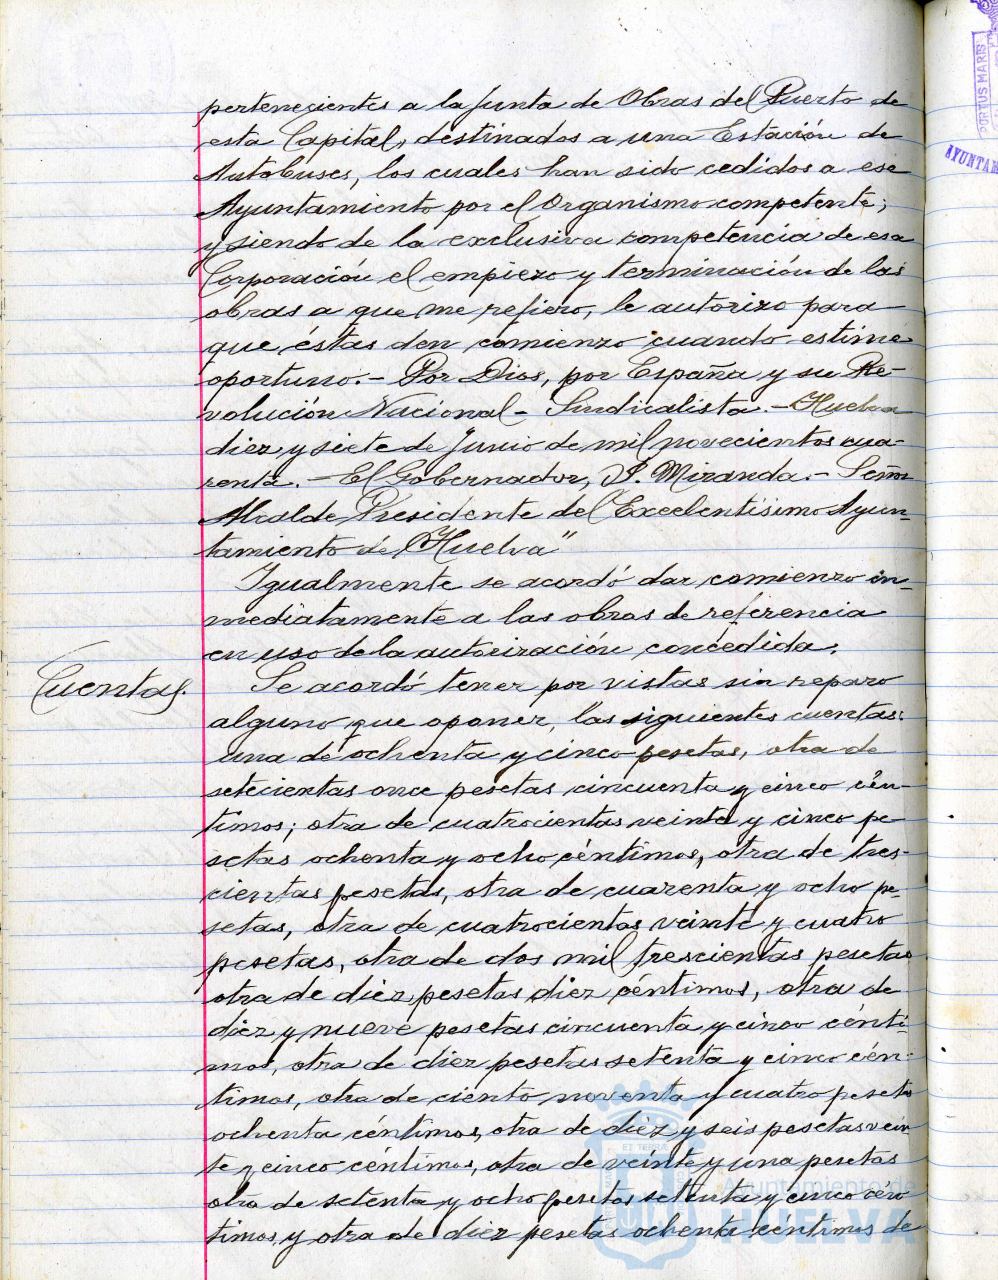 pertenecientes a la Junta de Obras del Puerto de
esta Capital, destinados a una Estación de
Autobuses, los cuales han sido cedidos a ese
Ayuntamiento por el Organismo competente;
y siendo de la exclusiva competencia de esa
Corporación el empiezo y terminación de las
obras a que me refiero, le autorizo para
que éstas den comienzo cuando estime
oportuno.- Por Dios, por España y su Re-
volución Nacional- Sindicalista.- Huelva
diez y siete de Junio de mil novecientos cua-
renta.- El Gobernador, J. Miranda.- Señor
Alcalde Presidente del Excelentísimo Ayun-
tamiento de Huelva"
Igualmente se acordó dar comienzo in-
mediatamente a las obras de referencia
en uso de la autorización concedida.
Cuentas.
Se acordó tener por vistas sin reparo
alguno que oponer, las siguientes cuentas:
una de ochenta y cinco pesetas, otra de
setecientas once pesetas cincuenta y cinco cén-
timos; otra de cuatrocientas veinte y cinco pe
setas ochenta y ocho céntimos, otra de tres-
cientas pesetas, otra de cuarenta y ocho pe-
setas, otra de cuatrocientas veinte y cuatro
pesetas, otra de dos mil trescientas pesetas
otra de diez pesetas diez céntimos, otra de
diez y nueve pesetas cincuenta y cinco cénti-
mos, otra de diez pesetas setenta y cinco cén-
timos, otra de ciento noventa y cuatro pesetas
ochenta céntimos, otra de diez y seis pesetas vein
te y cinco céntimos, otra de veinte y una pesetas
otra de setenta y ocho pesetas setenta y cinco cén
timos y otra de diez pesetas ochenta céntimos de
PORTUS MARIS
AYUNTAM
Ayuntamiento de
HUELVA